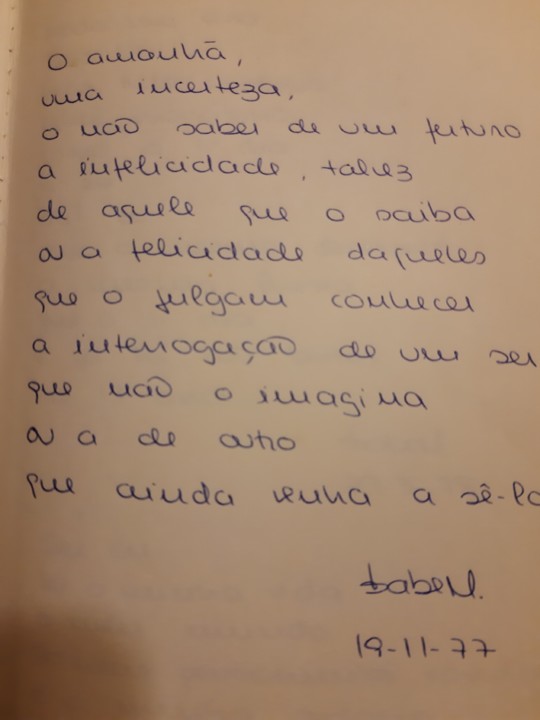 O amanhã,
uma incerteza,
o não saber de um futuro
a infelicidade, talvez
de aquele que o saiba
ou a felicidade daqueles
que o julgam conhecer
a interrogação de um ser
que não o imagina
ou a de outro
que ainda venha a sê-lo
19-11-77